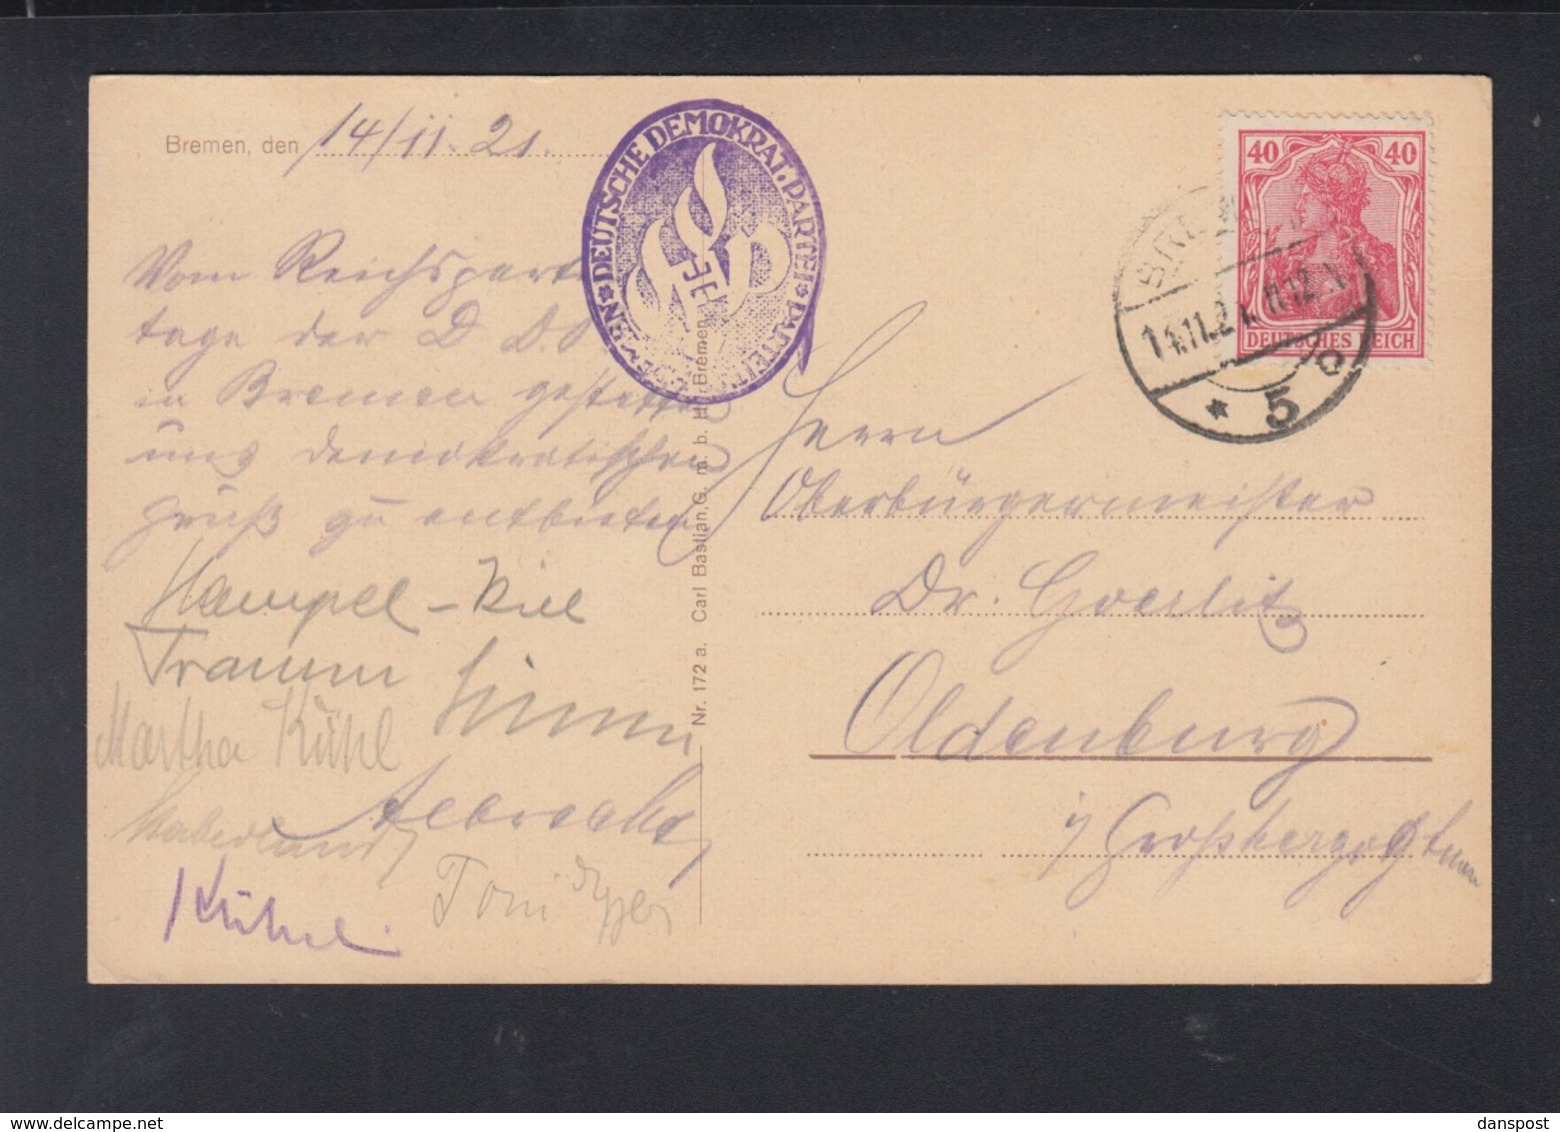 Bremen, den 14/11.21.
DEUTSCHE DEMOKRAT. PARTEI
40 40
DEUTSCHES REICH
14.11.21. 11-12 V
* 5 o
Vom Reichspartei
tage der D. D. P
in Bremen gestatten
uns demokratischen
Gruß zu entbieten
Hampel - Kiel
Traum
Martha Kühl
Haberland
Toni
Nr. 172 a. Carl Bastian G. m. b. H., Bremen
Herrn
Oberbürgermeister
Dr. Goerlitz
Oldenburg
i/ Großherzogtum
danspost